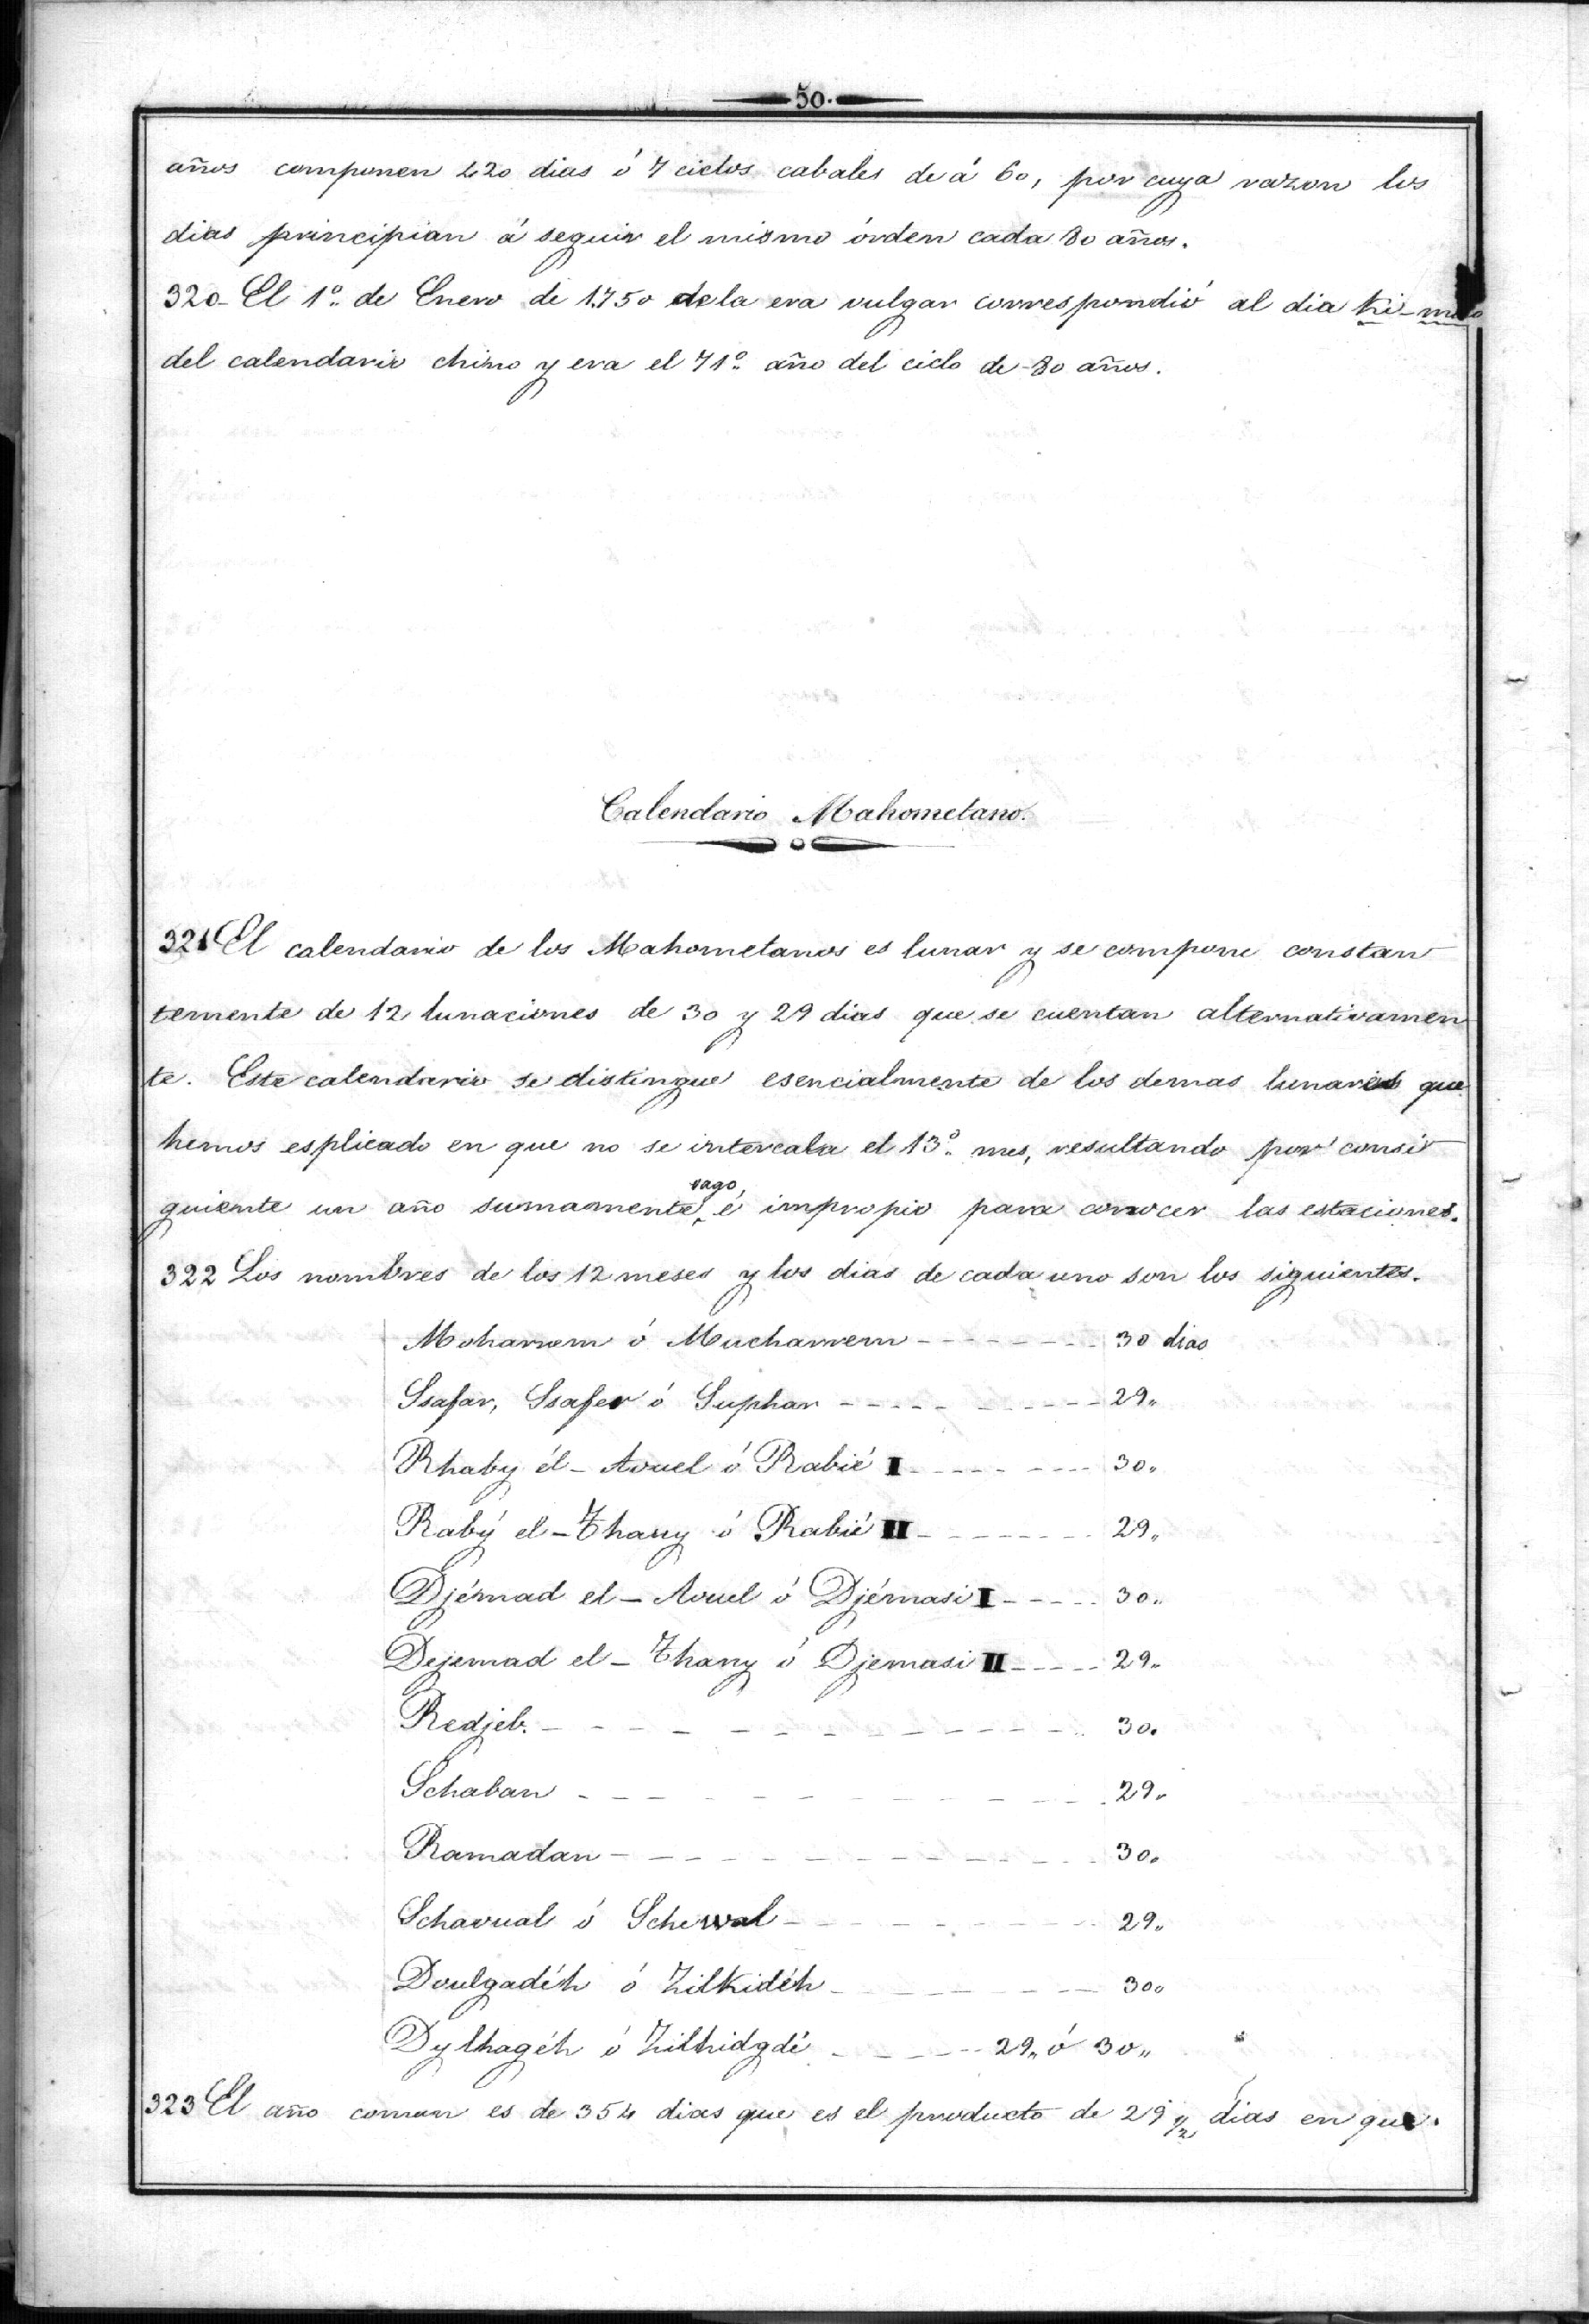 50.
años componen 420 dias ó 7 ciclos cabales de á 60, por cuya razon los
dias principian á seguir el mismo órden cada 80 años.
320_ El 1º de Enero de 1750 de la era vulgar correspondió al dia Ki_
del calendario chino y era el 71º año del ciclo de 80 años.
Calendario Mahometano.
321 El calendario de los Mahometanos es lunar y se compone constan
temente de 12 lunaciones de 30 y 29 dias que se cuentan alternativamen
te. Este calendario se distingue esencialmente de los demas lunares que
hemos esplicado en que no se intercala el 13º mes, resultando por consi
guiente un año sumamente vago, é impropio para conocer las estaciones.
322 Los nombres de los 12 meses y los dias de cada uno son los siguientes.
Moharrem ó Mucharrem - - - - - - - - 30 dias
Ssafar, Ssafer ó Suphar - - - - - - - - - - 29"
Rhaby él_Avuel ó Rabié I - - - - - - - - 30"
Raby el_Thany ó Rabié II - - - - - - - - 29"
Djémad el_Avuel ó Djémasi I - - - - - 30"
Dejemad el_Thany ó Djemasi II - - - - - 29"
Redjeb. - - - - - - - - - - - - - 30"
Schaban - - - - - - - - - - - - 29"
Ramadan - - - - - - - - - - - - 30"
Schavual ó Schewal - - - - - - - - - 29"
Doulgadéh ó Zilkidéh - - - - - - - - 30"
Dylhagéh ó Zilhidgdé - - - - - 29" ó 30"
323 El año comun es de 354 dias que es el producto de 29 1/2 dias en que.